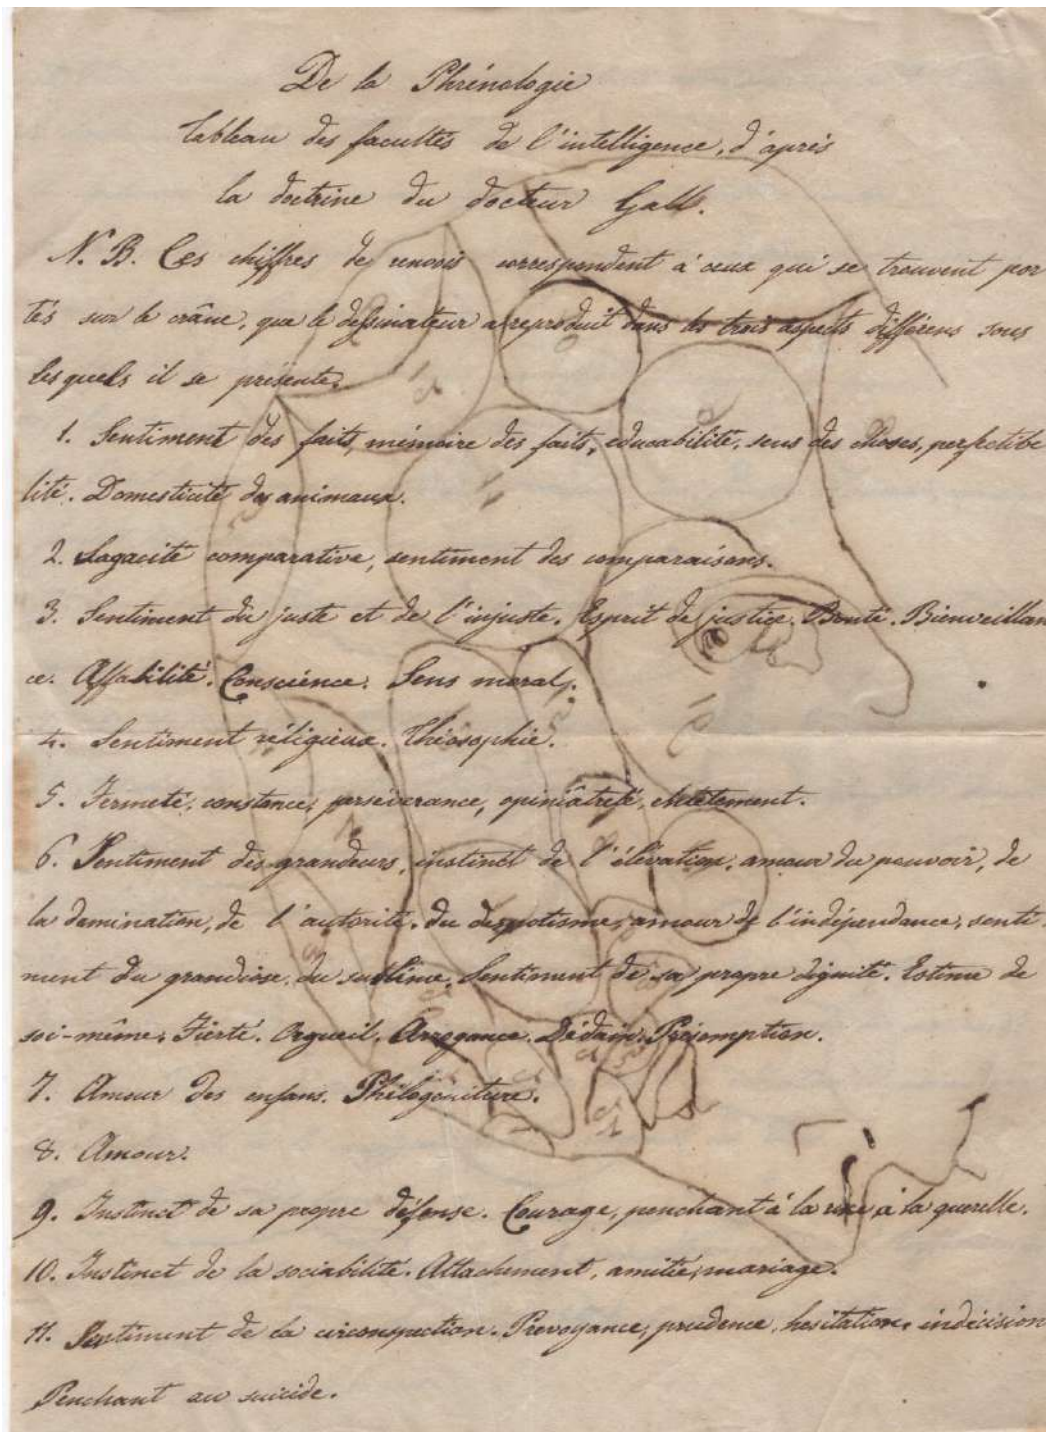 De la Phrénologie
Tableau des facultés de l'intelligence, d'après
la doctrine du docteur Gall.
N. B. Ces chiffres de renvois correspondent à ceux qui se trouvent por
tés sur le crâne, que le dessinateur a reproduit dans les trois aspects différens sous
lesquels il se présente.
1. Sentiment des faits, mémoire des faits, éducabilité, sens des choses, perfectibi
lité. Domesticité des animaux.
2. Sagacité comparative, sentiment des comparaisons.
3. Sentiment du juste et de l'injuste. Esprit de justice. Bonté. Bienveillan
ce. Affabilité. Conscience. Sens moral.
4. Sentiment réligieux. Théosophie.
5. Fermeté, constance, persévérance, opiniâtreté, entêtement.
6. Sentiment des grandeurs, instinct de l'élévation, amour du pouvoir, de
la domination, de l'autorité, du despotisme, amour de l'indépendance, senti
ment du grandiose, du sublime. Sentiment de sa propre dignité. Estime de
soi-même. Fierté. Orgueil. Arrogance. Dédain. Présomption.
7. Amour des enfans. Philogéniture.
8. Amour.
9. Instinct de sa propre défense. Courage, penchant à la rixe, à la querelle.
10. Instinct de la sociabilité. Attachement, amitié, mariage.
11. Sentiment de la circonspection. Prévoyance, prudence, hesitation, indécision
Penchant au suicide.